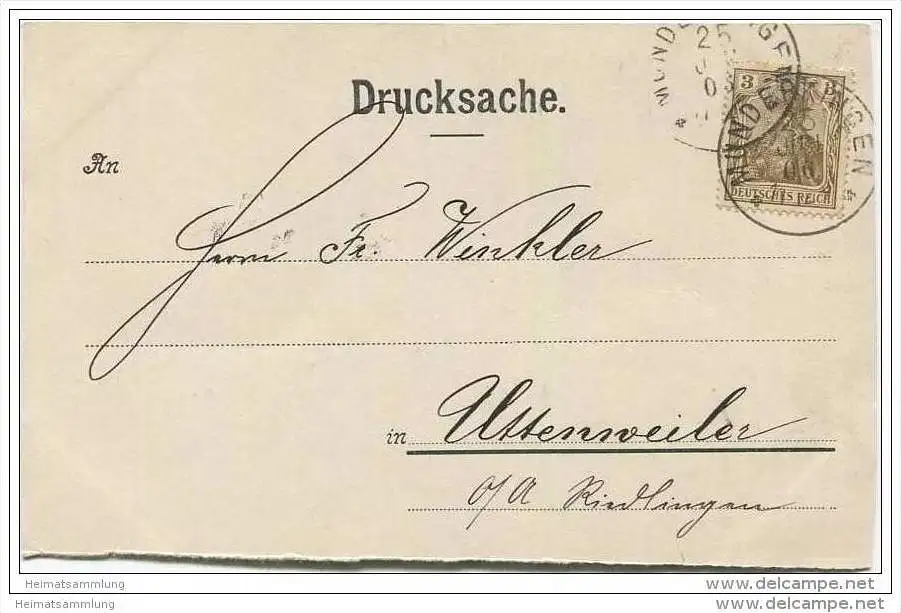 Drucksache.
MUNDERKINGEN
25
3 3
MUNDERKINGEN
DEUTSCHES REICH
An
Herrn Fr. Winkler
in Uttenweiler
o/A Riedlingen
Heimatsammlung
Heimatsammlung
www.delcampe.net
www.delcampe.net